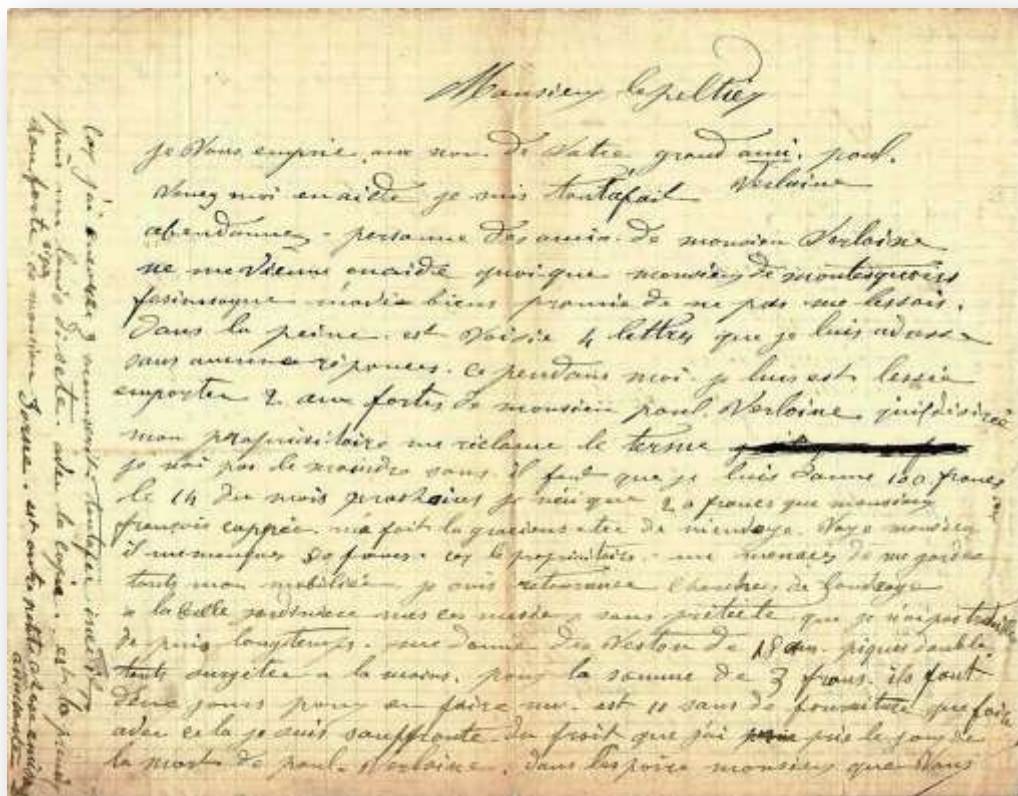 Monsieur lepeltiey
je Vous enprie aux nom de Votre grand ami. paul.
Verlaine
Venez moi enaide je suis toutafait
abendonnez - personne des amis de monsieu Verlaine
ne me Vienne enaide quoique monsieu de montesquiois
biens promis de ne pas me lessais.
dans la peine. est Voisie 4 lettres que je luis adresse
sans aucune réponces. Ce pendans moi je luis est lessia
emporter 2 aux fortes de monsieu paul Verloine
mon propriaitaire me réclame le terme
je nai pas le moindre sous. il faut que je luis donne 100 francs
le 14 du mois prochaires je néique 20 francs que monsieu
françois coppée. ma fait la de Voye monsieu
il me manques 80 francs. cay le propriaitaire. me menaces de me garder
touts mon mobiliés. je suis retournée chercher de
a la belle jardiniere sans pretecte que je naipas
de puis longtemps. me donne des Veston de 18 piques double.
touts surgetés a la moins. pour la somme de 3 frans. ils font
deux jours pour en faire un. est 10 sous de fourniture
adec cela je suis souffronte du froit que jai pris le jour de
la mort de paul. Verloine. dans lespoire monsieu que Vous
cay j'ai encore 3 toutafai inedites
luis adec la copie. est la
monsieu est autre